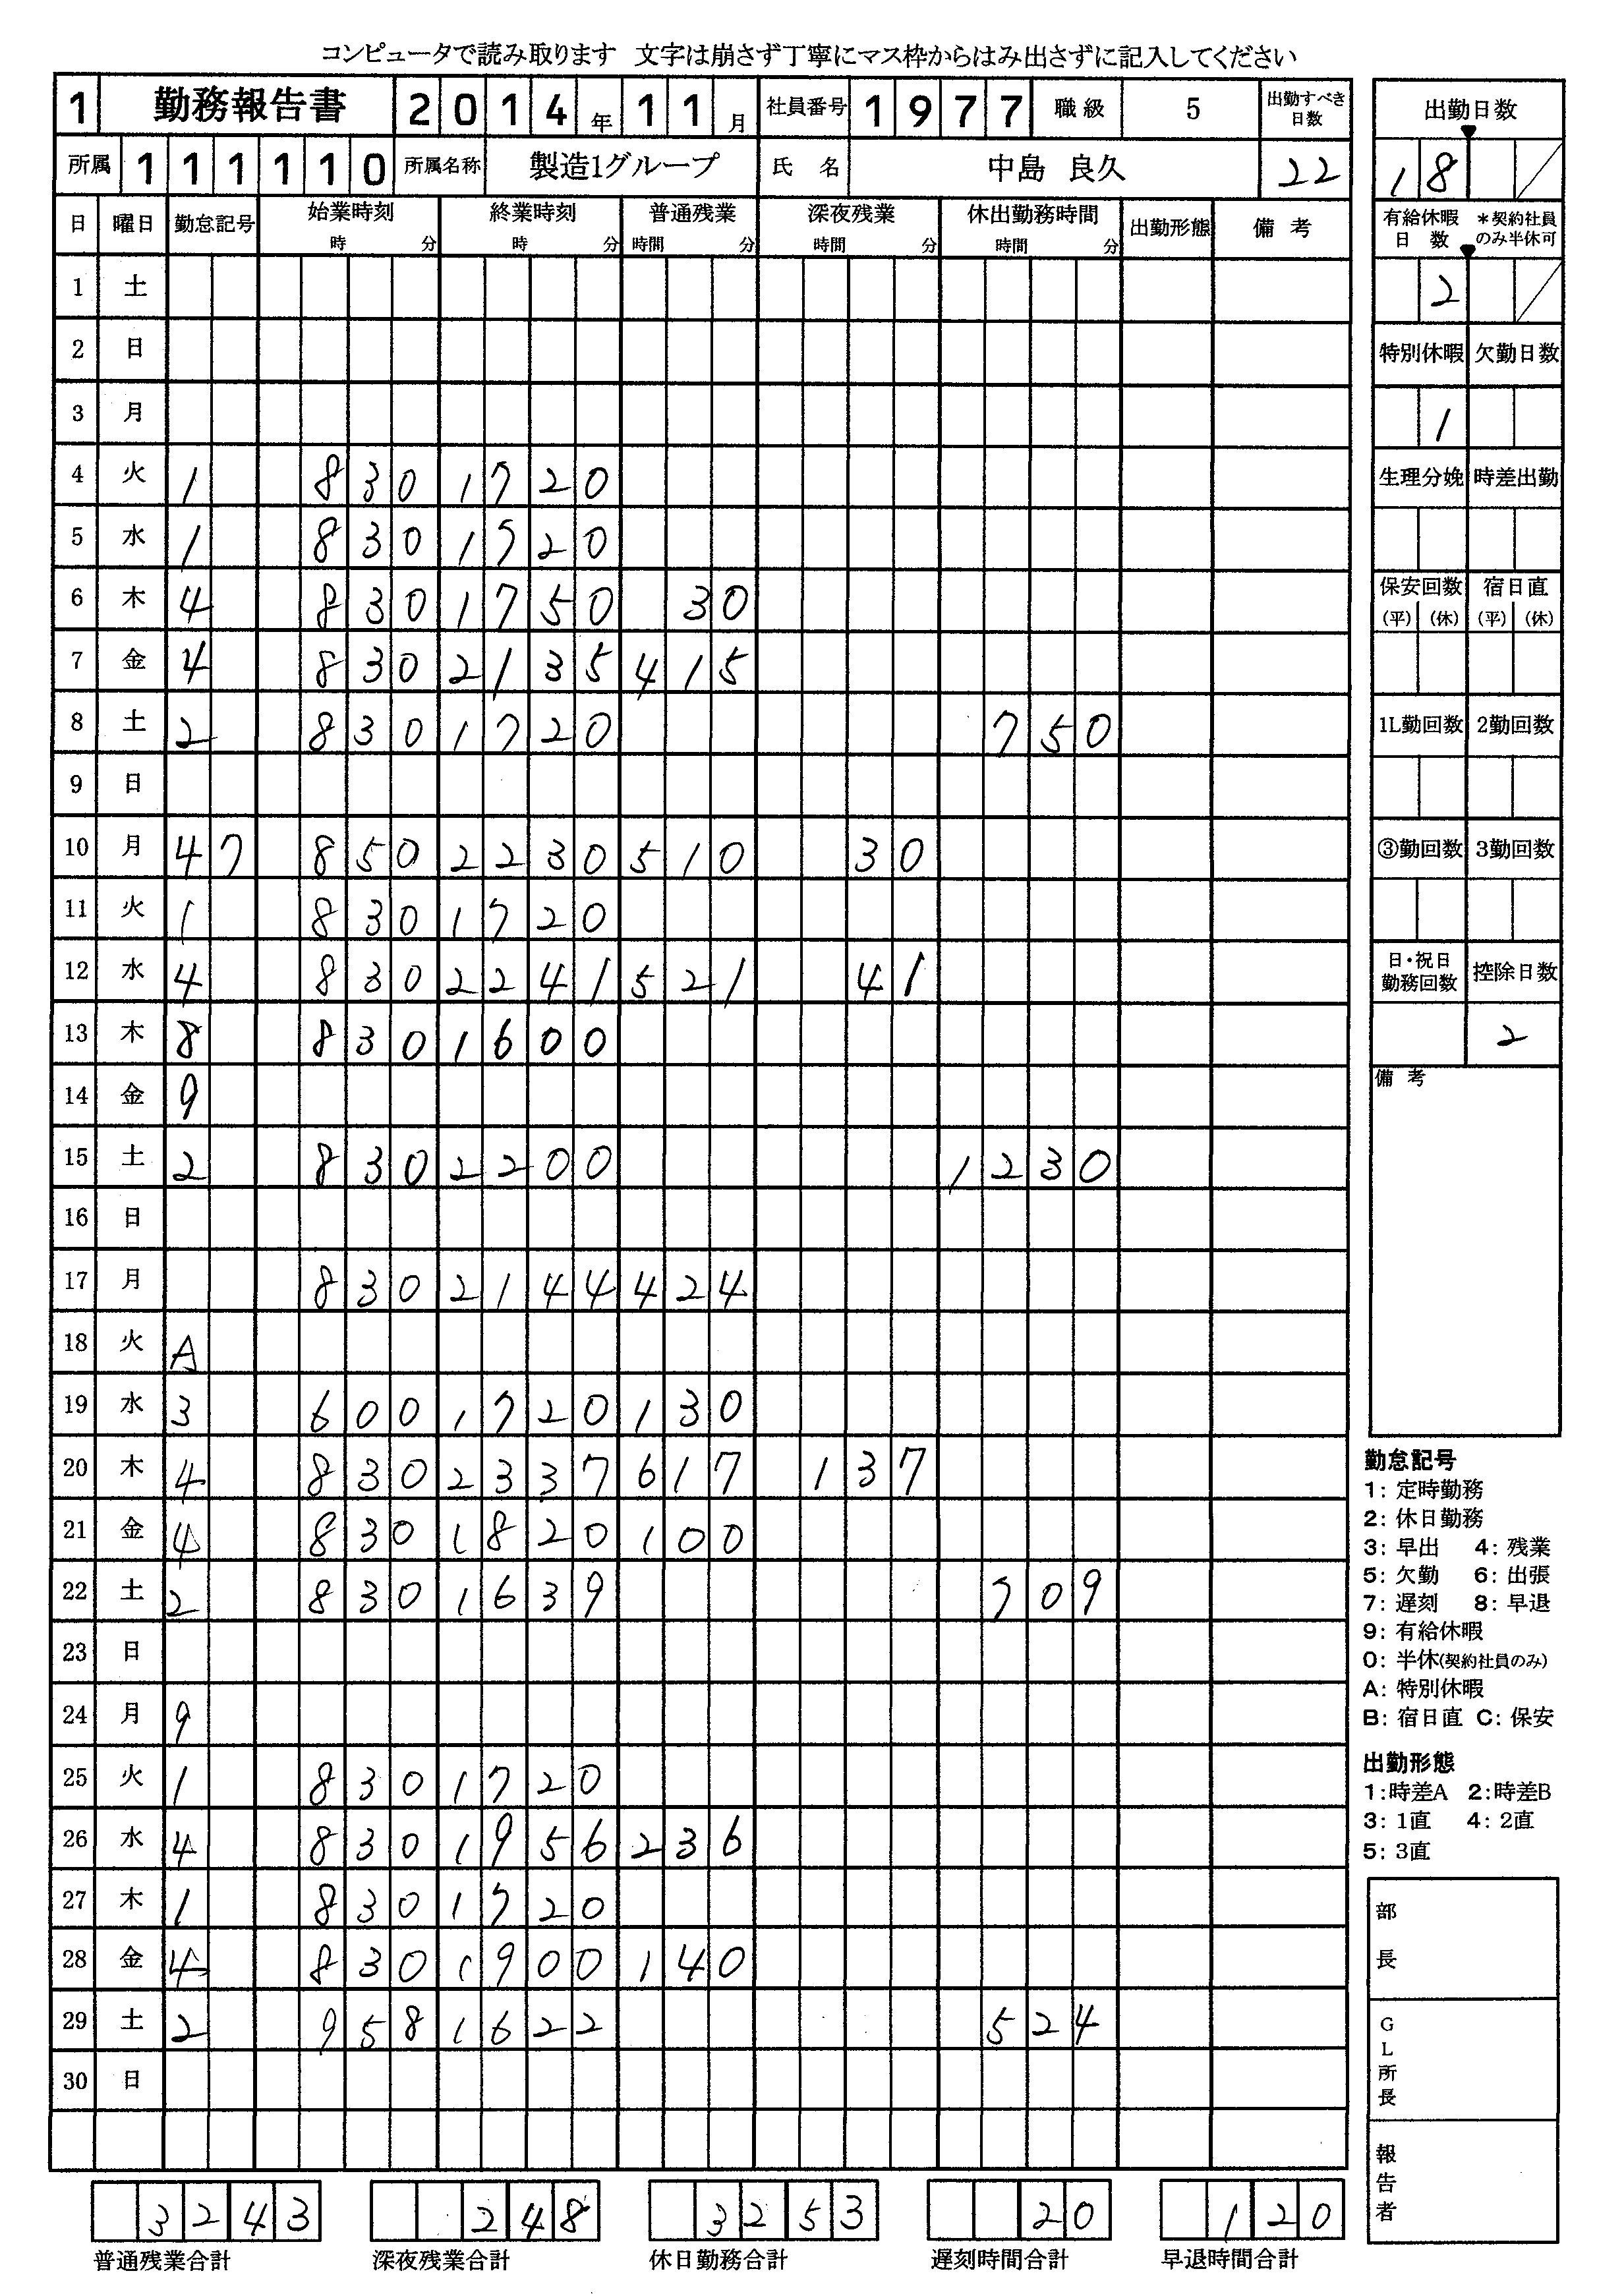 コンピュータで読み取ります 文字は崩さず丁寧にマス枠からはみ出さずに記入してください
1 勤務報告書 2014年11月 社員番号 1977 職級 5 出勤すべき日数
所属 111110 所属名称 製造1グループ 氏 名 中島 良久 22
日 曜日 勤怠記号 始業時刻 時 分 終業時刻 時 分 普通残業 時間 分 深夜残業 時間 分 休出勤務時間 時間 分 出勤形態 備 考
1 土
2 日
3 月
4 火 1 830 1720
5 水 1 830 1720
6 木 4 830 1750 30
7 金 4 830 2135 415
8 土 2 830 1720 750
9 日
10 月 47 850 2230 510 30
11 火 1 830 1720
12 水 4 830 2241 521 41
13 木 8 830 1600
14 金 9
15 土 2 830 2200 1230
16 日
17 月 830 2144 424
18 火 A
19 水 3 600 1720 130
20 木 4 830 2337 617 137
21 金 4 830 1820 100
22 土 2 830 1639 709
23 日
24 月 9
25 火 1 830 1720
26 水 4 830 1956 236
27 木 1 830 1720
28 金 4 830 1900 140
29 土 2 958 1622 524
30 日
3243 248 3253 20 120
普通残業合計 深夜残業合計 休日勤務合計 遅刻時間合計 早退時間合計
出勤日数
18
有給休暇日 数 *契約社員のみ半休可
2
特別休暇 欠勤日数
1
生理分娩 時差出勤
保安回数 宿日直
(平) (休) (平) (休)
1L勤回数 2勤回数
③勤回数 3勤回数
日・祝日勤務回数 控除日数
2
備 考
勤怠記号
1: 定時勤務
2: 休日勤務
3: 早出 4: 残業
5: 欠勤 6: 出張
7: 遅刻 8: 早退
9: 有給休暇
0: 半休(契約社員のみ)
A: 特別休暇
B: 宿日直 C: 保安
出勤形態
1:時差A 2:時差B
3: 1直 4: 2直
5: 3直
部長
GL所長
報告者